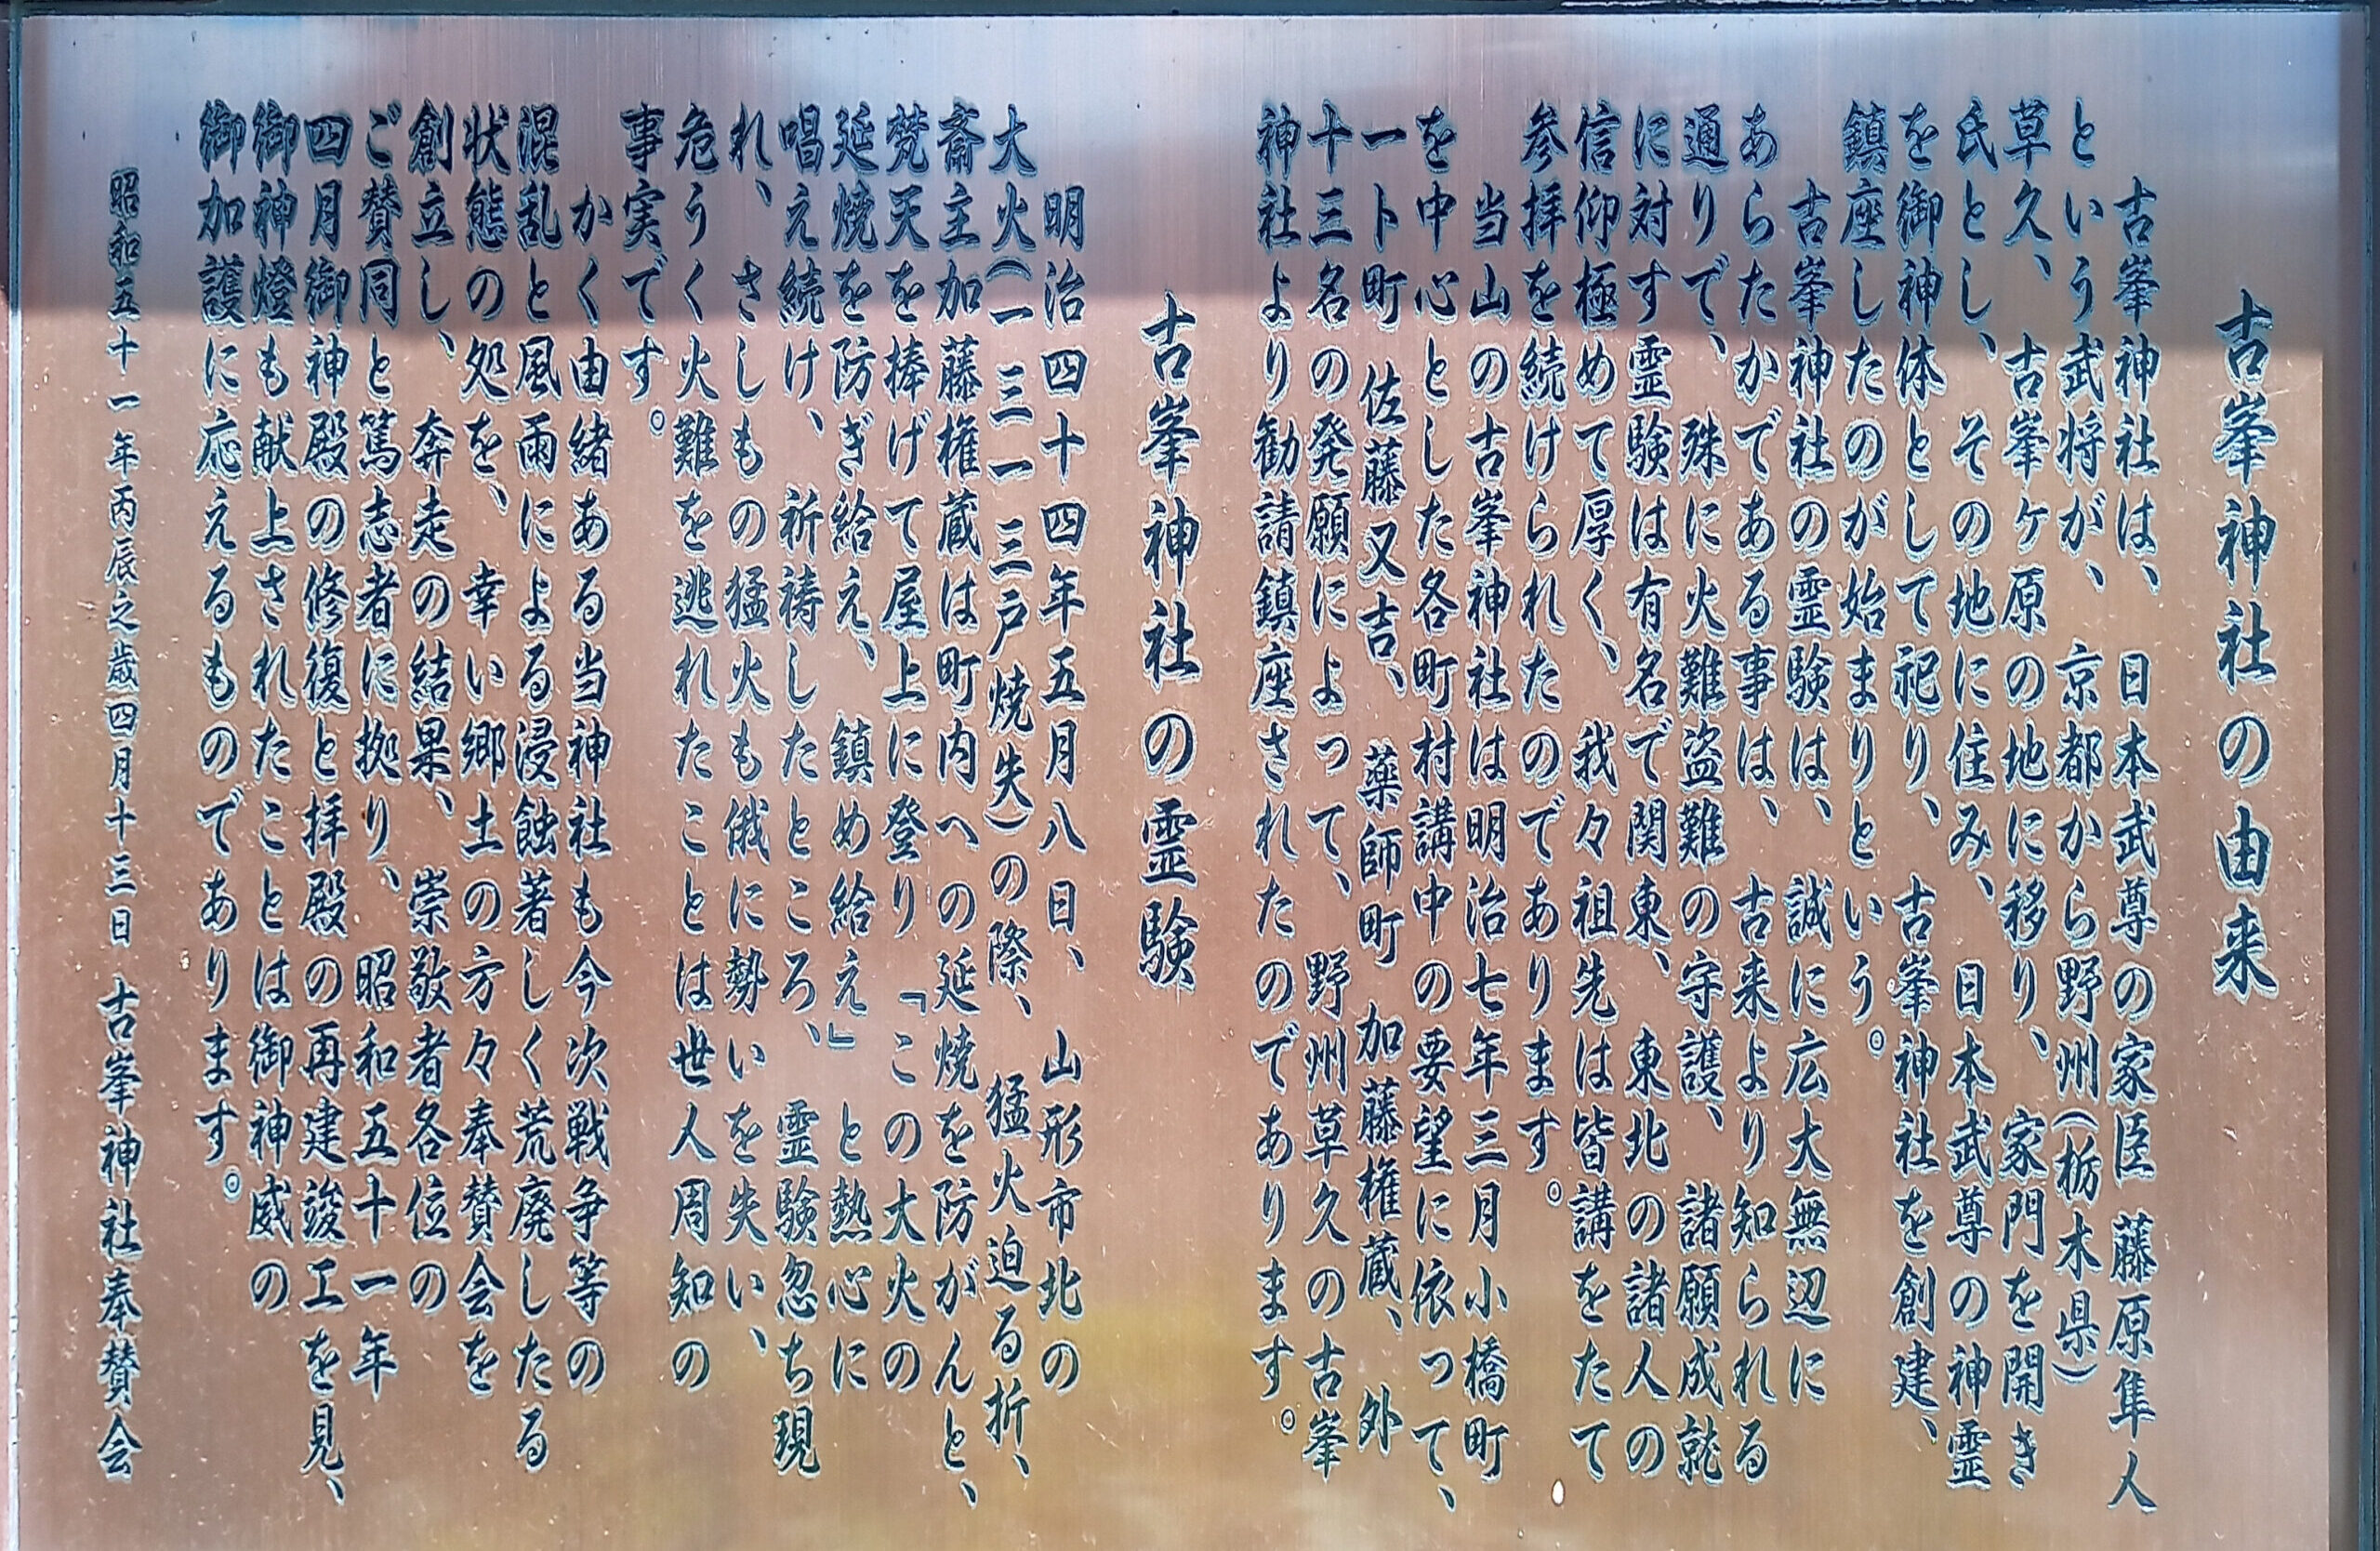 古峯神社の由来
古峯神社は、日本武尊の家臣 藤原隼人
という武将が、京都から野州(栃木県)
草久、古峯ヶ原の地に移り、家門を開き
氏とし、その地に住み、日本武尊の神霊
を御神体として祀り、古峯神社を創建、
鎮座したのが始まりという。
古峯神社の霊験は、誠に広大無辺に
あらたかである事は、古来より知られる
通りで、殊に火難盗難の守護、諸願成就
に対す霊験は有名で関東、東北の諸人の
信仰極めて厚く、我々祖先は皆講をたて
参拝を続けられたのであります。
当山の古峯神社は明治七年三月小橋町
を中心とした各町村講中の要望に依って、
一ト町 佐藤又吉、薬師町 加藤権蔵、外
十三名の発願によって、野州草久の古峯
神社より勧請鎮座されたのであります。
古峯神社の霊験
明治四十四年五月八日、山形市北の
大火(一三一三戸焼失)の際、猛火迫る折、
斎主加藤権蔵は町内への延焼を防がんと、
梵天を棒げて屋上に登り「この大火の
延焼を防ぎ給え、鎮め給え」と熱心に
唱え続け、祈祷したところ、霊験忽ち現
れ、さしもの猛火も俄に勢いを失い、
危うく火難を逃れたことは世人周知の
事実です。
かく由緒ある当神社も今次戦争等の
混乱と風雨による浸蝕著しく荒廃したる
状態の処を、幸い郷土の方々奉賛会を
創立し、奔走の結果、崇敬者各位の
ご賛同と篤志者に拠り、昭和五十一年
四月御神殿の修復と拝殿の再建竣工を見、
御神燈も献上されたことは御神威の
御加護に応えるものであります。
昭和五十一年丙辰之歳四月十三日 古峯神社奉賛会